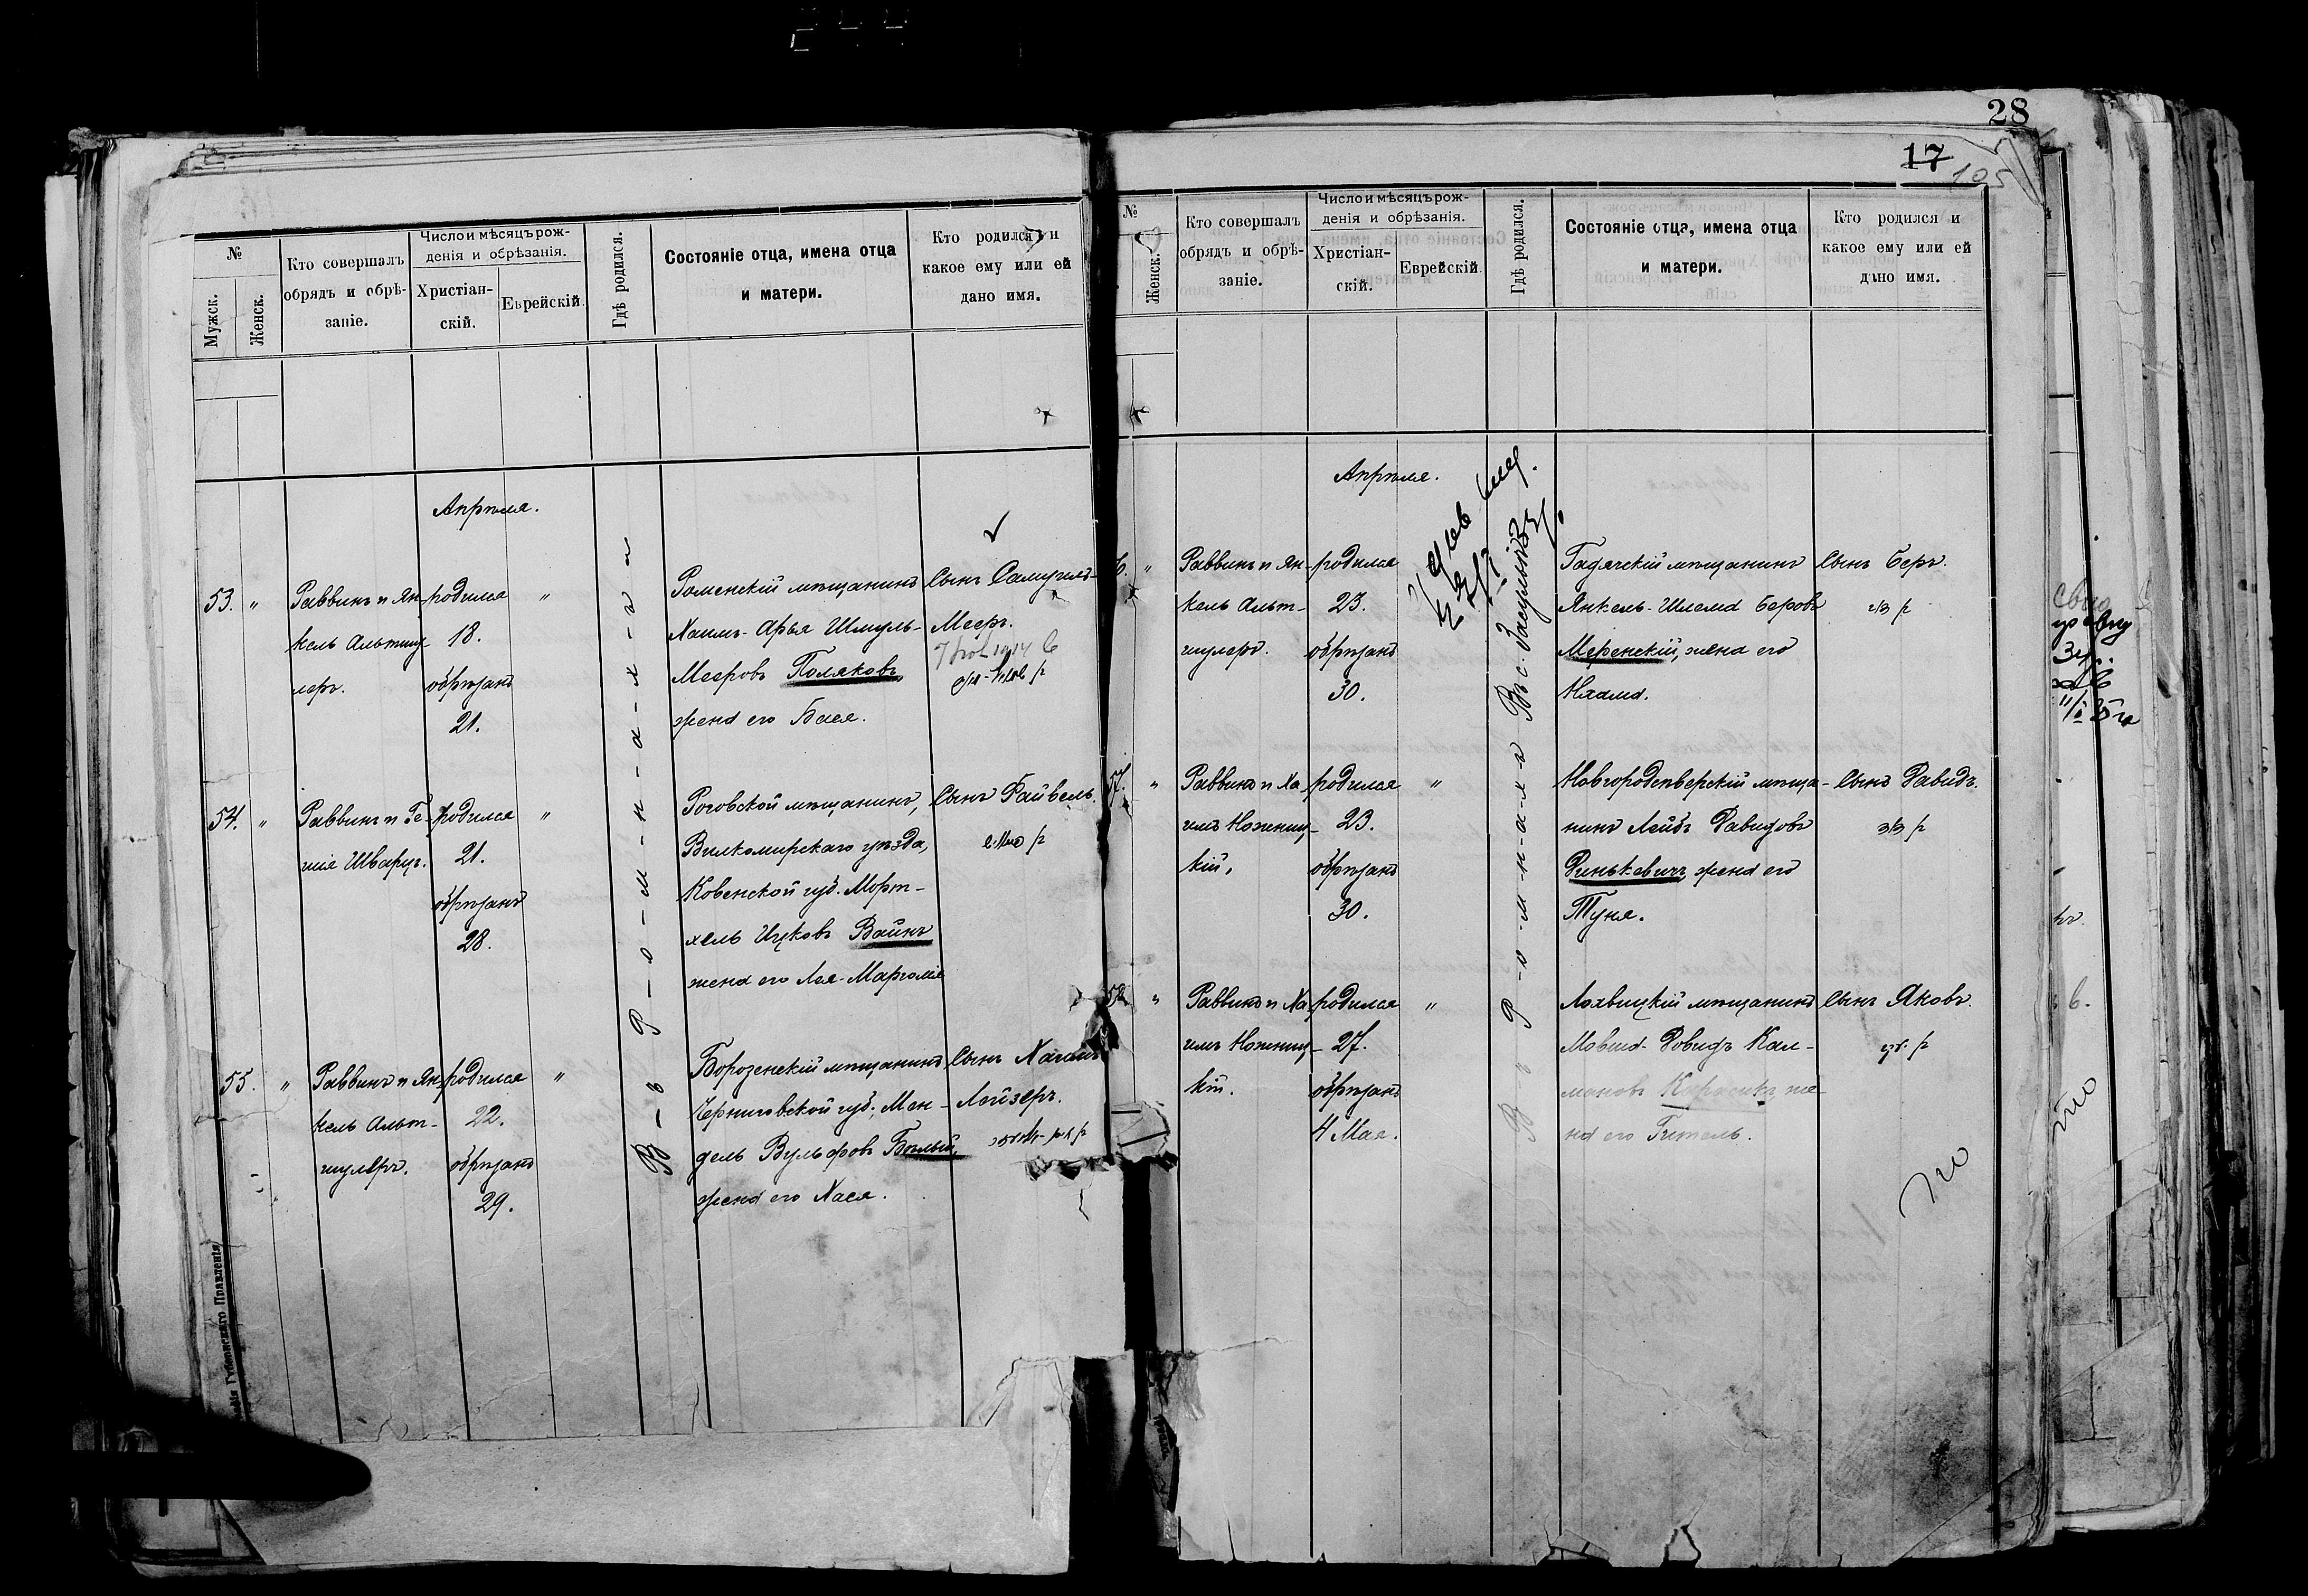 №
Мужск.
Женск.
Кто совершалъ
обрядъ и обрѣ-
заніе.
Число и мѣсяцъ рож-
денія и обрѣзанія.
Христіан-
скій.
Еврейскій.
Гдѣ родился.
Состояніе отца, имена отца
и матери.
Кто родился и
какое ему или ей
дано имя.
Апрѣля.
В-ъ Р-о-м-н-а-х-ъ
53. "
Раввинъ и Ян-
кель Альтшу-
леръ.
родился
18.
обрѣзанъ
21.
"
Роменскій мѣщанинъ
Хаимъ-Арья Шмуль-
Мееровъ Поляковъ,
жена его Бася.
Сынъ Самуилъ-
Мееръ.
54. "
Раввинъ и Ге-
шія Шварцъ.
родился
21.
обрѣзанъ
28.
"
Роговской мѣщанинъ,
Вилкомирскаго уѣзда,
Ковенской губ. Морт-
хель Ицковъ Вайнъ
жена его Лея-Марголія
Сынъ Файвель.
55. "
Раввинъ и Ян-
кель Альт-
шулеръ.
родился
22.
обрѣзанъ
29.
"
Борозенскій мѣщанинъ
Черниговской губ., Мен-
дель Вульфовъ Бѣлый,
жена его Хася.
Сынъ Хаимъ
Лейзеръ.
Губернскаго Правленія
28
17
105
№
Женск.
Кто совершалъ
обрядъ и обрѣ-
заніе.
Число и мѣсяцъ рож-
денія и обрѣзанія.
Христіан-
скій.
Еврейскій.
Гдѣ родился.
Состояніе отца, имена отца
и матери.
Кто родился и
какое ему или ей
дано имя.
Апрѣля.
6. "
Раввинъ и Ян-
кель Альт-
шулеръ.
родился
23.
обрѣзанъ
30.
Въ с. Засульѣ
Гадячскій мѣщанинъ
Янкель-Шлема Беровъ
Меренскій, жена его
Нхама.
Сынъ Беръ.
57. "
Раввинъ и Ха-
имъ Ножениц-
кій.
родился
23.
обрѣзанъ
30.
"
В ъ Р-о-м-н-а-х-ъ
Новгородсѣверскій мѣща-
нинъ Лейбъ Давидовъ
Динькевичъ, жена его
Туня.
Сынъ Давидъ.
58. "
Раввинъ и Ха-
имъ Ножениц-
кій.
родился
27.
обрѣзанъ
4 Мая.
"
Лохвицкій мѣщанинъ
Мовша-Довидъ Кал-
мановъ Карасикъ же-
на его Гитель.
Сынъ Яковъ.